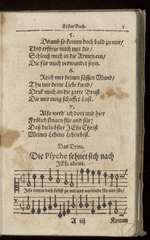 Erster Buch.
5.
Drumb so komm doch bald zu mir/
Und erfreue mich mit dir/
Schleuß mich in die Armen ein/
Die für mich verwundet seyn.
6.
Reich mir deinen süssen Mund/
Thu mir deine Liebe kund/
Druk mich an die zarte Brust
Die mir ewig schaffet Lust.
7.
Also werd' ich dort und hier
Frölich singen für und für/
Daß du liebster JEsu Christ
Meines Lebens Leben bist.
Das Dritte.
Die Psyche sehnet sich nach
JEsu allein.
A iij Komm